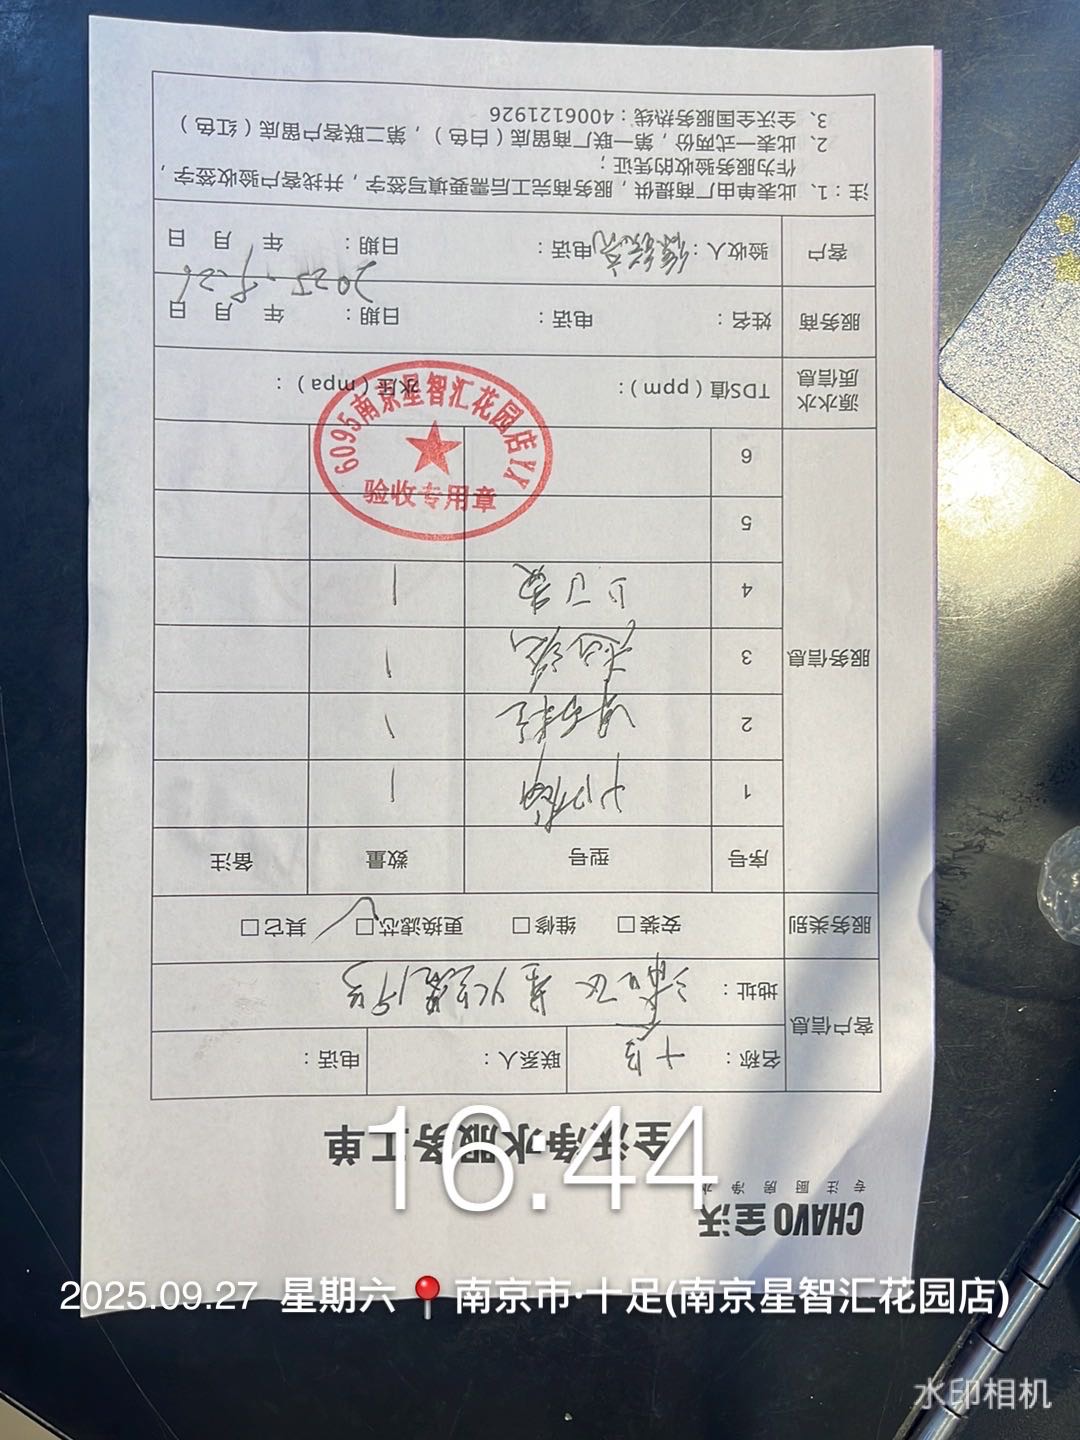 CHAVO全沃
专注厨房净水
全沃净水服务工单
客户信息
名称：十足
联系人：
电话：
地址：
服务类别
安装□
维修□
更换滤芯□
其它□
服务信息
序号
型号
数量
备注
1
1
2
1
3
1
4
1
5
6
源水水质信息
TDS值（ppm）：
水压（mpa）：
6095南京星智汇花园店YX
验收专用章
服务商
姓名：
电话：
日期：
年 月 日
2025.9.26
客户
验收人：
电话：
日期：
年 月 日
注：1、此表单由厂商提供，服务商完工后需要填写签字，并找客户验收签字，
作为服务验收的凭证；
2、此表一式两份，第一联厂商留底（白色），第二联客户留底（红色）
3、全沃全国服务热线：4006121926
16:44
2025.09.27 星期六 南京市·十足(南京星智汇花园店)
水印相机